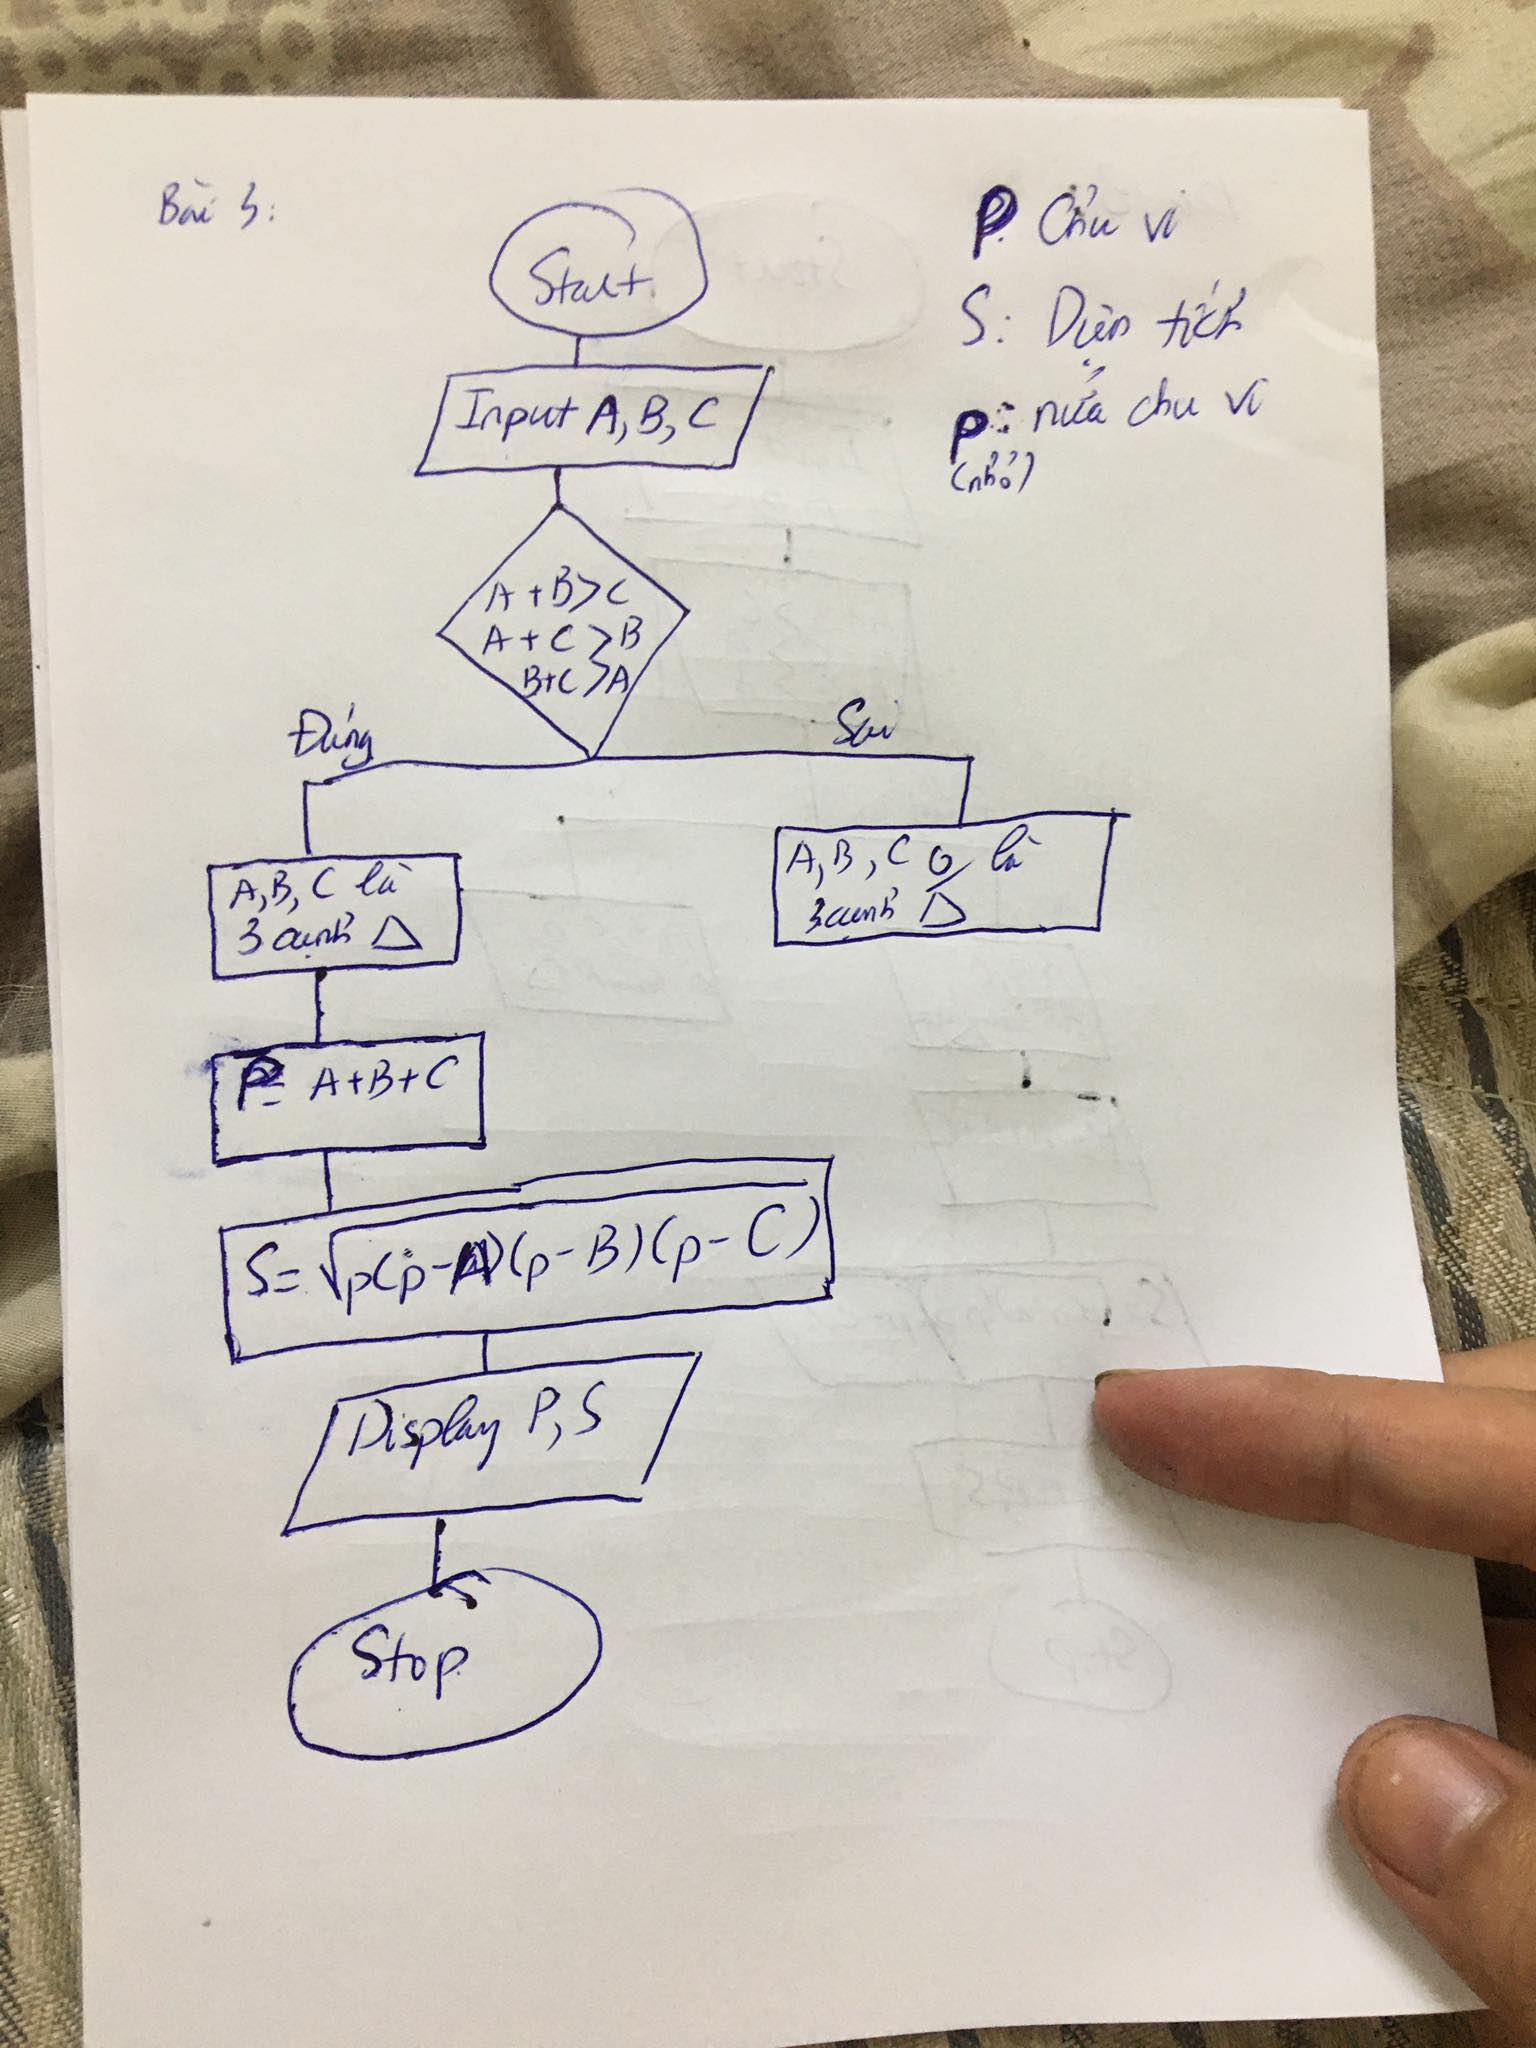 Bài 3:
Start
P: Chu vi
S: Diện tích
p: nửa chu vi
(nhỏ)
Input A, B, C
A+B>C
A+C>B
B+C>A
Đúng
Sai
A, B, C là
3 cạnh Δ
A, B, C o là
3 cạnh Δ
P= A+B+C
S= √p(p-A)(p-B)(p-C)
Display P, S
Stop